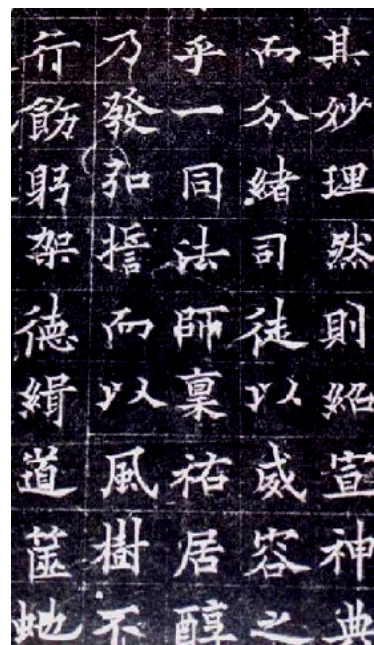 其妙理然則紹宣神典
而分緒司徒以威容之
乎一同法師稟祐居醇
乃發弘誓而以風樹不
行飭躬架德緝道虵